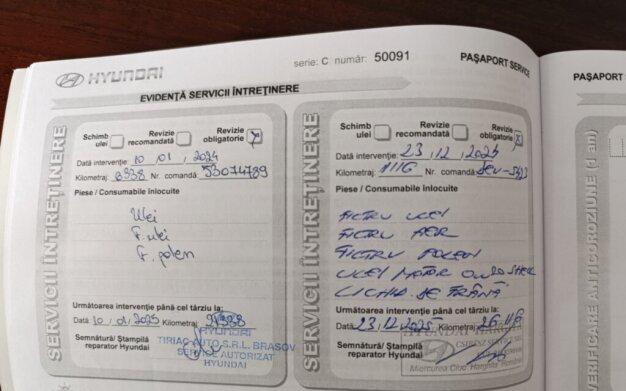 HYUNDAI
serie: C număr: 50091
PAȘAPORT SERVICE
EVIDENȚĂ SERVICII ÎNTREȚINERE
SERVICII ÎNTREȚINERE
Schimb ulei
Revizie recomandată
Revizie obligatorie
Data intervenție: 10, 01, 2024
Kilometraj: 8938 Nr. comandă: 53074789
Piese / Consumabile înlocuite
Ulei
F. ulei
F. polen
Următoarea intervenție până cel târziu la:
Dată 10, 01, 2025 Kilometraj
Semnătură/ Ștampilă
reparator Hyundai
HYUNDAI
TIRIAC AUTO S.R.L. BRASOV
SERVICE AUTORIZAT
HYUNDAI
SERVICII ÎNTREȚINERE
Schimb ulei
Revizie recomandată
Revizie obligatorie
Data intervenție: 23, 12, 2024
Kilometraj: Nr. comandă:
Piese / Consumabile înlocuite
FILTRU ULEI
FILTRU AER
FILTRU POLEN
ULEI MOTOR SHELL
LICHID DE FRÂNĂ
Următoarea intervenție până cel târziu la:
Dată 23, 12, 2025 Kilometraj
Semnătură/ Ștampilă
reparator Hyundai
Miercurea Ciuc
PAȘAPORT
VERIFICARE ANTICOROZIUNE (1 an)